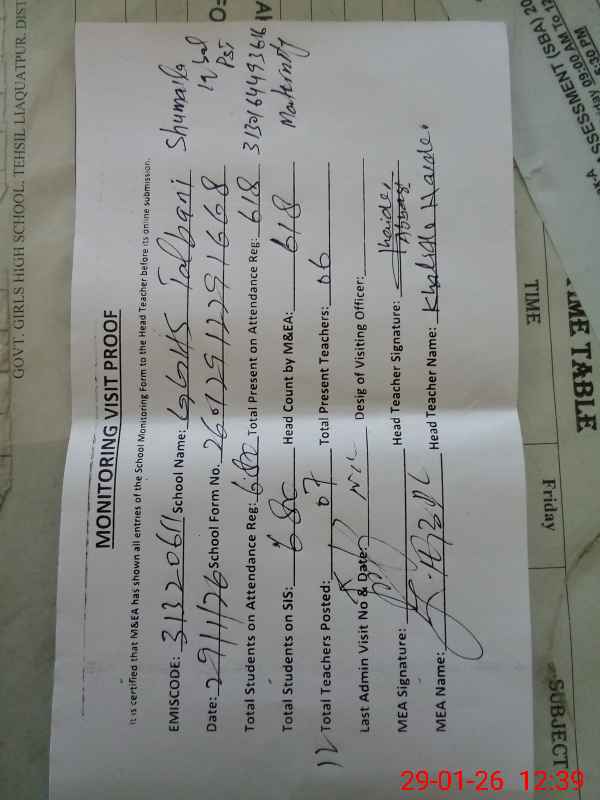 MONITORING VISIT PROOF
It is certified that M&EA has shown all entries of the School Monitoring Form to the Head Teacher before its online submission.
EMISCODE: 31320611 School Name: GGHS Talbani
Date: 29/1/26 School Form No. 260129122916668
Total Students on Attendance Reg: 680 Total Present on Attendance Reg: 618
Total Students on SIS: 680 Head Count by M&EA: 618
12 Total Teachers Posted: 07 Total Present Teachers: 06
Last Admin Visit No & Date: Nil Desig of Visiting Officer:
MEA Signature: Head Teacher Signature:
MEA Name: Head Teacher Name: Khalida Haider
Shumaila
Iqbal
PST
3130164493616
Maternity
GOVT. GIRLS HIGH SCHOOL, TEHSIL LIAQUATPUR, DIST
ASSESSMENT (SBA) 20
09:00 AM To 12
5:30 PM
TIME TABLE
TIME
Friday
SUBJECT
29-01-26 12:39